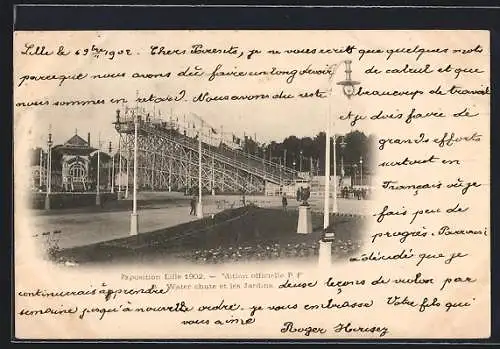 Lille le 6 9bre 1902. Chers Parents, je ne vous écrit que quelques mots
parceque nous avons dû faire un long devoir de calcul et que
nous sommes en retard. Nous avons du reste beaucoup de travail
Je dois faire de
grands efforts
surtout en
Français où je
fais peu de
progrès.
continuerais à prendre deux leçons de violon par
semaine jusqu'à nouvelle ordre. je vous embrasse Votre fils qui
vous aime Roger
Exposition Lille 1902. - Edition officielle P F
Water chute et les Jardins.